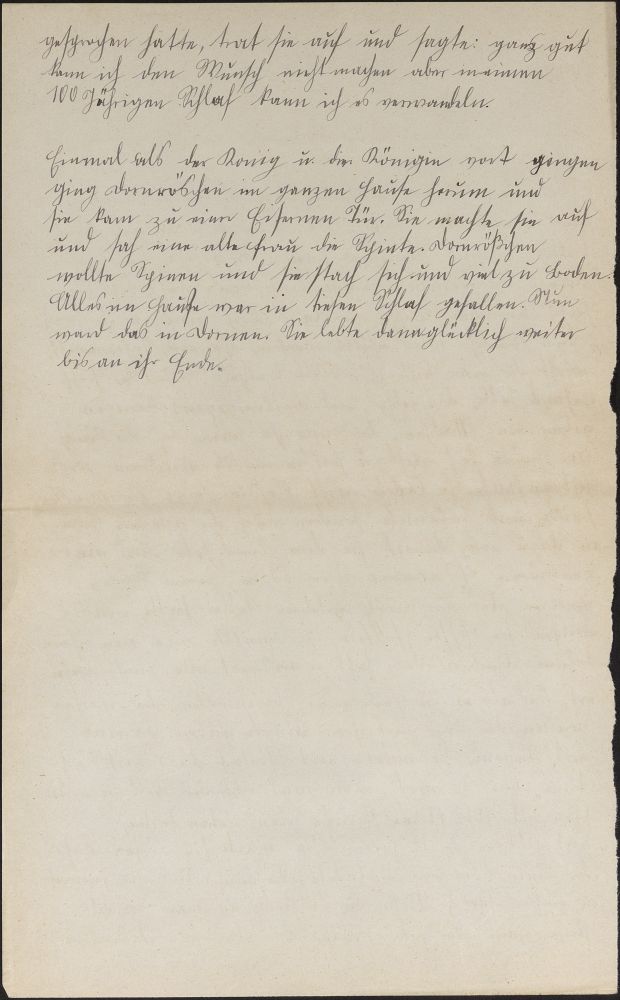 gesprochen hatte, trat sie auf und sagte: ganz gut
kann ich den Wunsch nicht machen aber in einen
100 Jährigen Schlaf kann ich es verwandeln.
Einmal als der König u. die Königin vort gingen
ging Dornröschen im ganzen Hause herum und
sie kam zu einer Eisernen Tür. Sie machte sie auf
und sah eine alte Frau die Spinte. Dornrößchen
wollte Spinen und sie stach sich und viel zu Boden.
Alles im Hause war in tiefen Schlaf gefallen. Nun
ward das in Dornen. Sie lebte dann glücklich weiter
bis an ihr Ende.